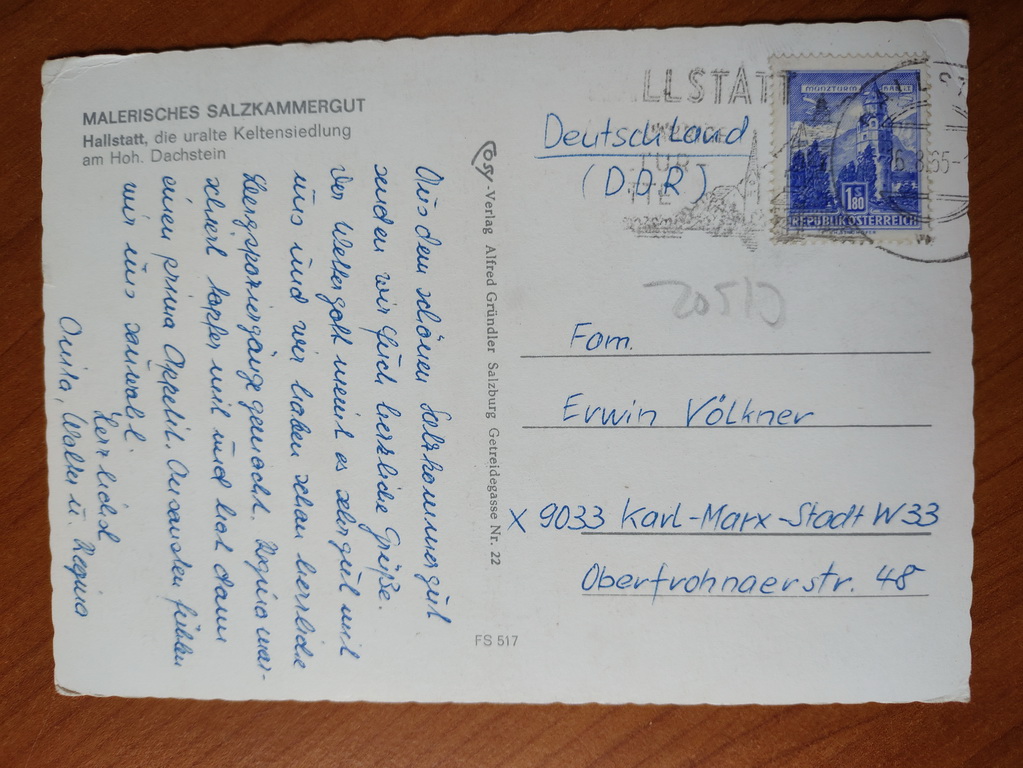 MALERISCHES SALZKAMMERGUT
Hallstatt, die uralte Keltensiedlung
am Hoh. Dachstein
Aus dem schönen Salzkammergut
senden wir Euch herzliche Grüße.
Der Wettergott meint es sehr gut mit
uns und wir haben schon herrliche
Bergspaziergänge gemacht. Regina mar-
schiert tapfer mit und hat dann
einen prima Appetit. Ansonsten fühlen
wir uns sauwohl.
Herzlichst
Anita, Walter u. Regina
Cosy-Verlag Alfred Gründler Salzburg Getreidegasse Nr. 22
FS 517
HALLSTATT
Deutschland
(D.D.R.)
MÜNZTURM HALL I.T.
1S 80
REPUBLIK ÖSTERREICH
Fam.
Erwin Völkner
X 9033 Karl-Marx-Stadt W33
Oberfrohnaerstr. 48